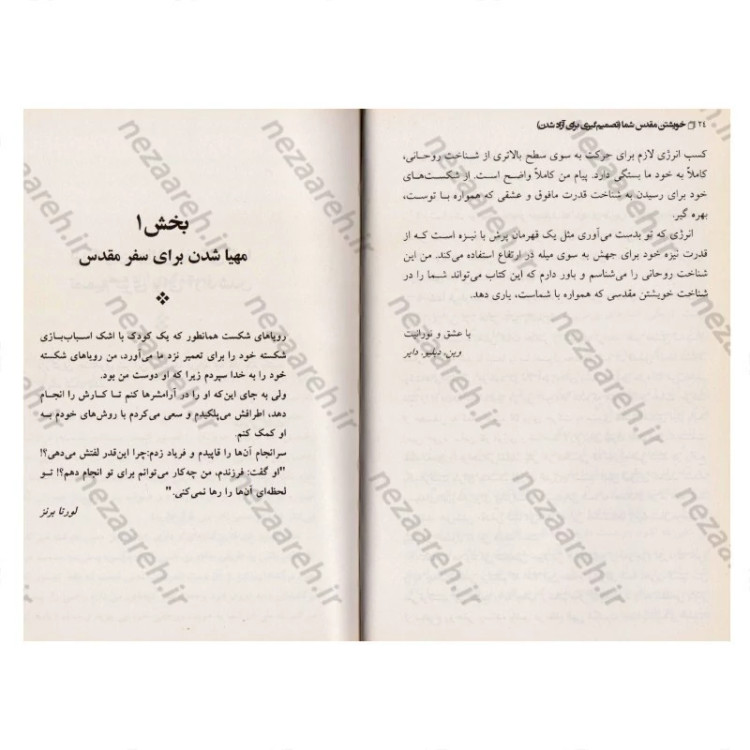 ۲۴ خویشتن مقدس شما (تصمیم‌گیری برای آزاد شدن)
کسب انرژی لازم برای حرکت به سوی سطح بالاتری از شناخت روحانی،
کاملاً به خود ما بستگی دارد. پیام من کاملاً واضح است. از شکست‌های
خود برای رسیدن به شناخت قدرت مافوق و عشقی که همواره با توست،
بهره گیر.
انرژی که تو بدست می‌آوری مثل یک قهرمان پرش با نیزه است کـه از
قدرت نیزه خود برای جهش به سوی میله در ارتفاع استفاده می‌کند. من این
شناخت روحانی را می‌شناسم و باور دارم که این کتاب می‌تواند شـما را در
شناخت خویشتن مقدسی که همواره با شماست، یاری دهد.
با عشق و نورانیت
وین. دبلیو. دایر
بخش ۱
مهیا شدن برای سفر مقدس
رویاهای شکست همانطور که یک کودک با اشک اسـباب‌بـازی
شکسته خود را برای تعمیر نزد ما می‌آورد، من رویاهای شکسته
خود را به خدا سپردم زیرا که او دوست من بود.
ولی به جای این‌که او را در آرامش‌رها کنم تـا کـارش را انجـام
دهد، اطرافش می‌پلکیدم و سعی می‌کردم با روش‌های خودم بـه
او کمک کنم.
سرانجام آن‌ها را قاپیدم و فریاد زدم:چرا این‌قدر لفتش می‌دهی؟!
"او گفت: فرزندم، من چه‌کار می‌توانم برای تو انجام دهم؟! تـو
لحظه‌ای آن‌ها را رها نمی‌کنی."
لورتا برنز
nezaareh.ir
nezaareh.ir
nezaareh.ir
nezaareh.ir
nezaareh.ir
nezaareh.ir
nezaareh.ir
nezaareh.ir
nezaareh.ir